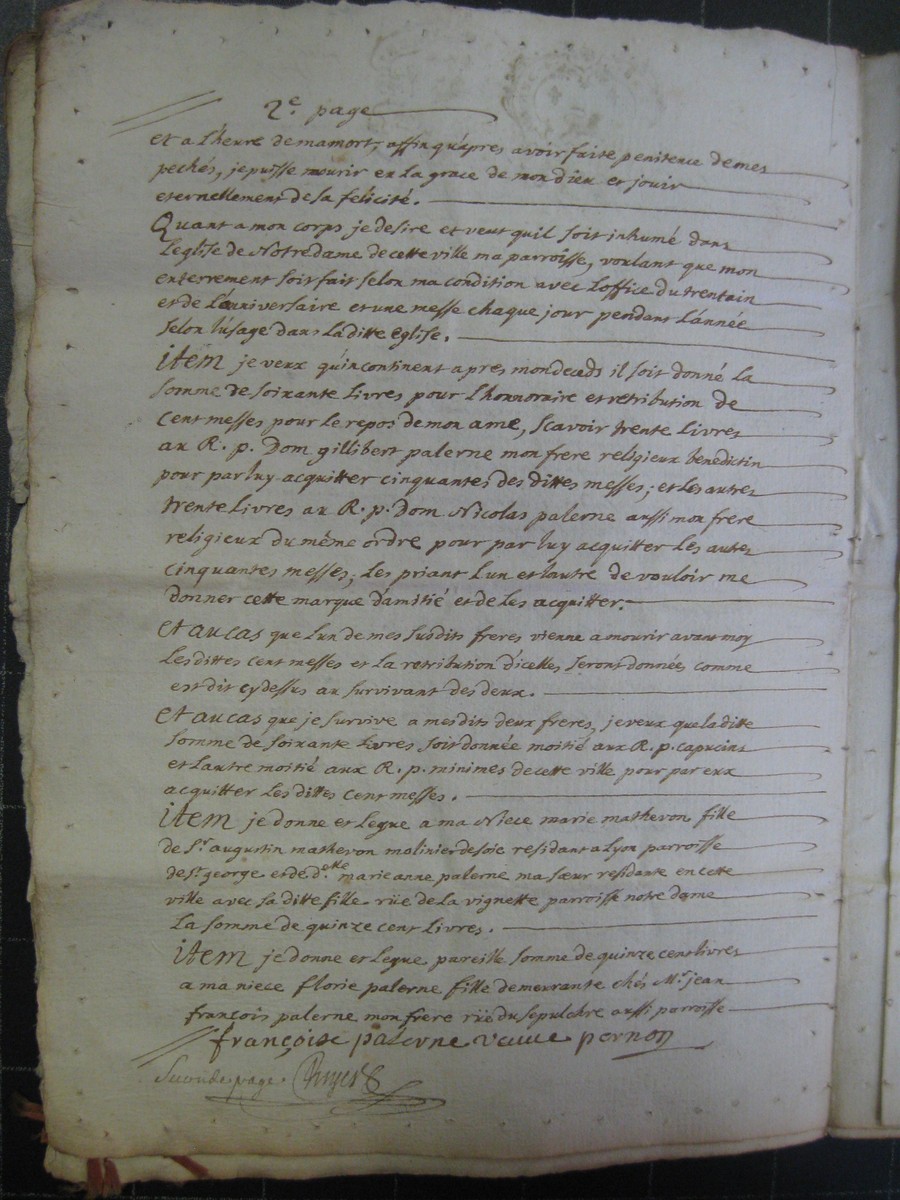 2e. page
et a l'heure de ma mort, affin qu'apres avoir faite penitence de mes
pechés, je puisse mourir en la grace de mon dieu et jouir
eternellement de sa félicité.
Quant a mon corps je desire et veut quil soit inhumé dans
l'eglise de Notre dame de cette ville ma parroisse, voulant que mon
enterrement soit fait selon ma condition avec l'office du trentain
et de l'anniversaire et une messe chaque jour pendant l'année
selon l'usage dans laditte eglise.
item je veux qu'incontinent apres mon decads il soit donné la
somme de soixante livres pour l'honnoraire et retribution de
cent messes pour le repos de mon ame, scavoir trente livres
au R. p. Dom gillibert palerne mon frere religieux benedictin
pour par luy acquitter cinquantes des dittes messes; et les autres
trente livres au R. p. Dom Nicolas palerne aussi mon frere
religieux du même ordre pour par luy acquitter les autres
cinquantes messes; les priant l'un et l'autre de vouloir me
donner cette marque d'amitié et de les acquitter.
Et au cas que l'un de mes susdits freres vienne a mourir avant moy
les dittes cent messes et la retribution d'icelles seront données comme
est dit cy dessus au survivant des deux.
Et au cas que je survive a mesdits deux freres, je veux que la ditte
somme de soixante livres soit donnée moitié aux R. p. capucins
et l'autre moitié aux R. p. minimes de cette ville pour par eux
acquitter les dittes cent messes.
item je donne et legue a ma Niece marie mathevon fille
de Sr. augustin mathevon malinier de soie residant a Lyon parroisse
de St. george et de d.elle marie anne palerne ma sœur residante en cette
ville avec sa ditte fille rüe de la vignette parroisse notre dame
la somme de quinze cent livres.
item je donne et legue pareille somme de quinze cent livres
a ma niece florie palerne fille demeurante chés Mr. jean
françois palerne mon frere rüe du sepulchre aussi parroisse
françoise palerne veuve pernon
Seconde page